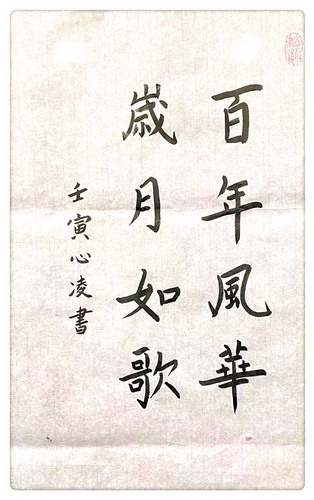 百年風華
歲月如歌
壬寅心凌書